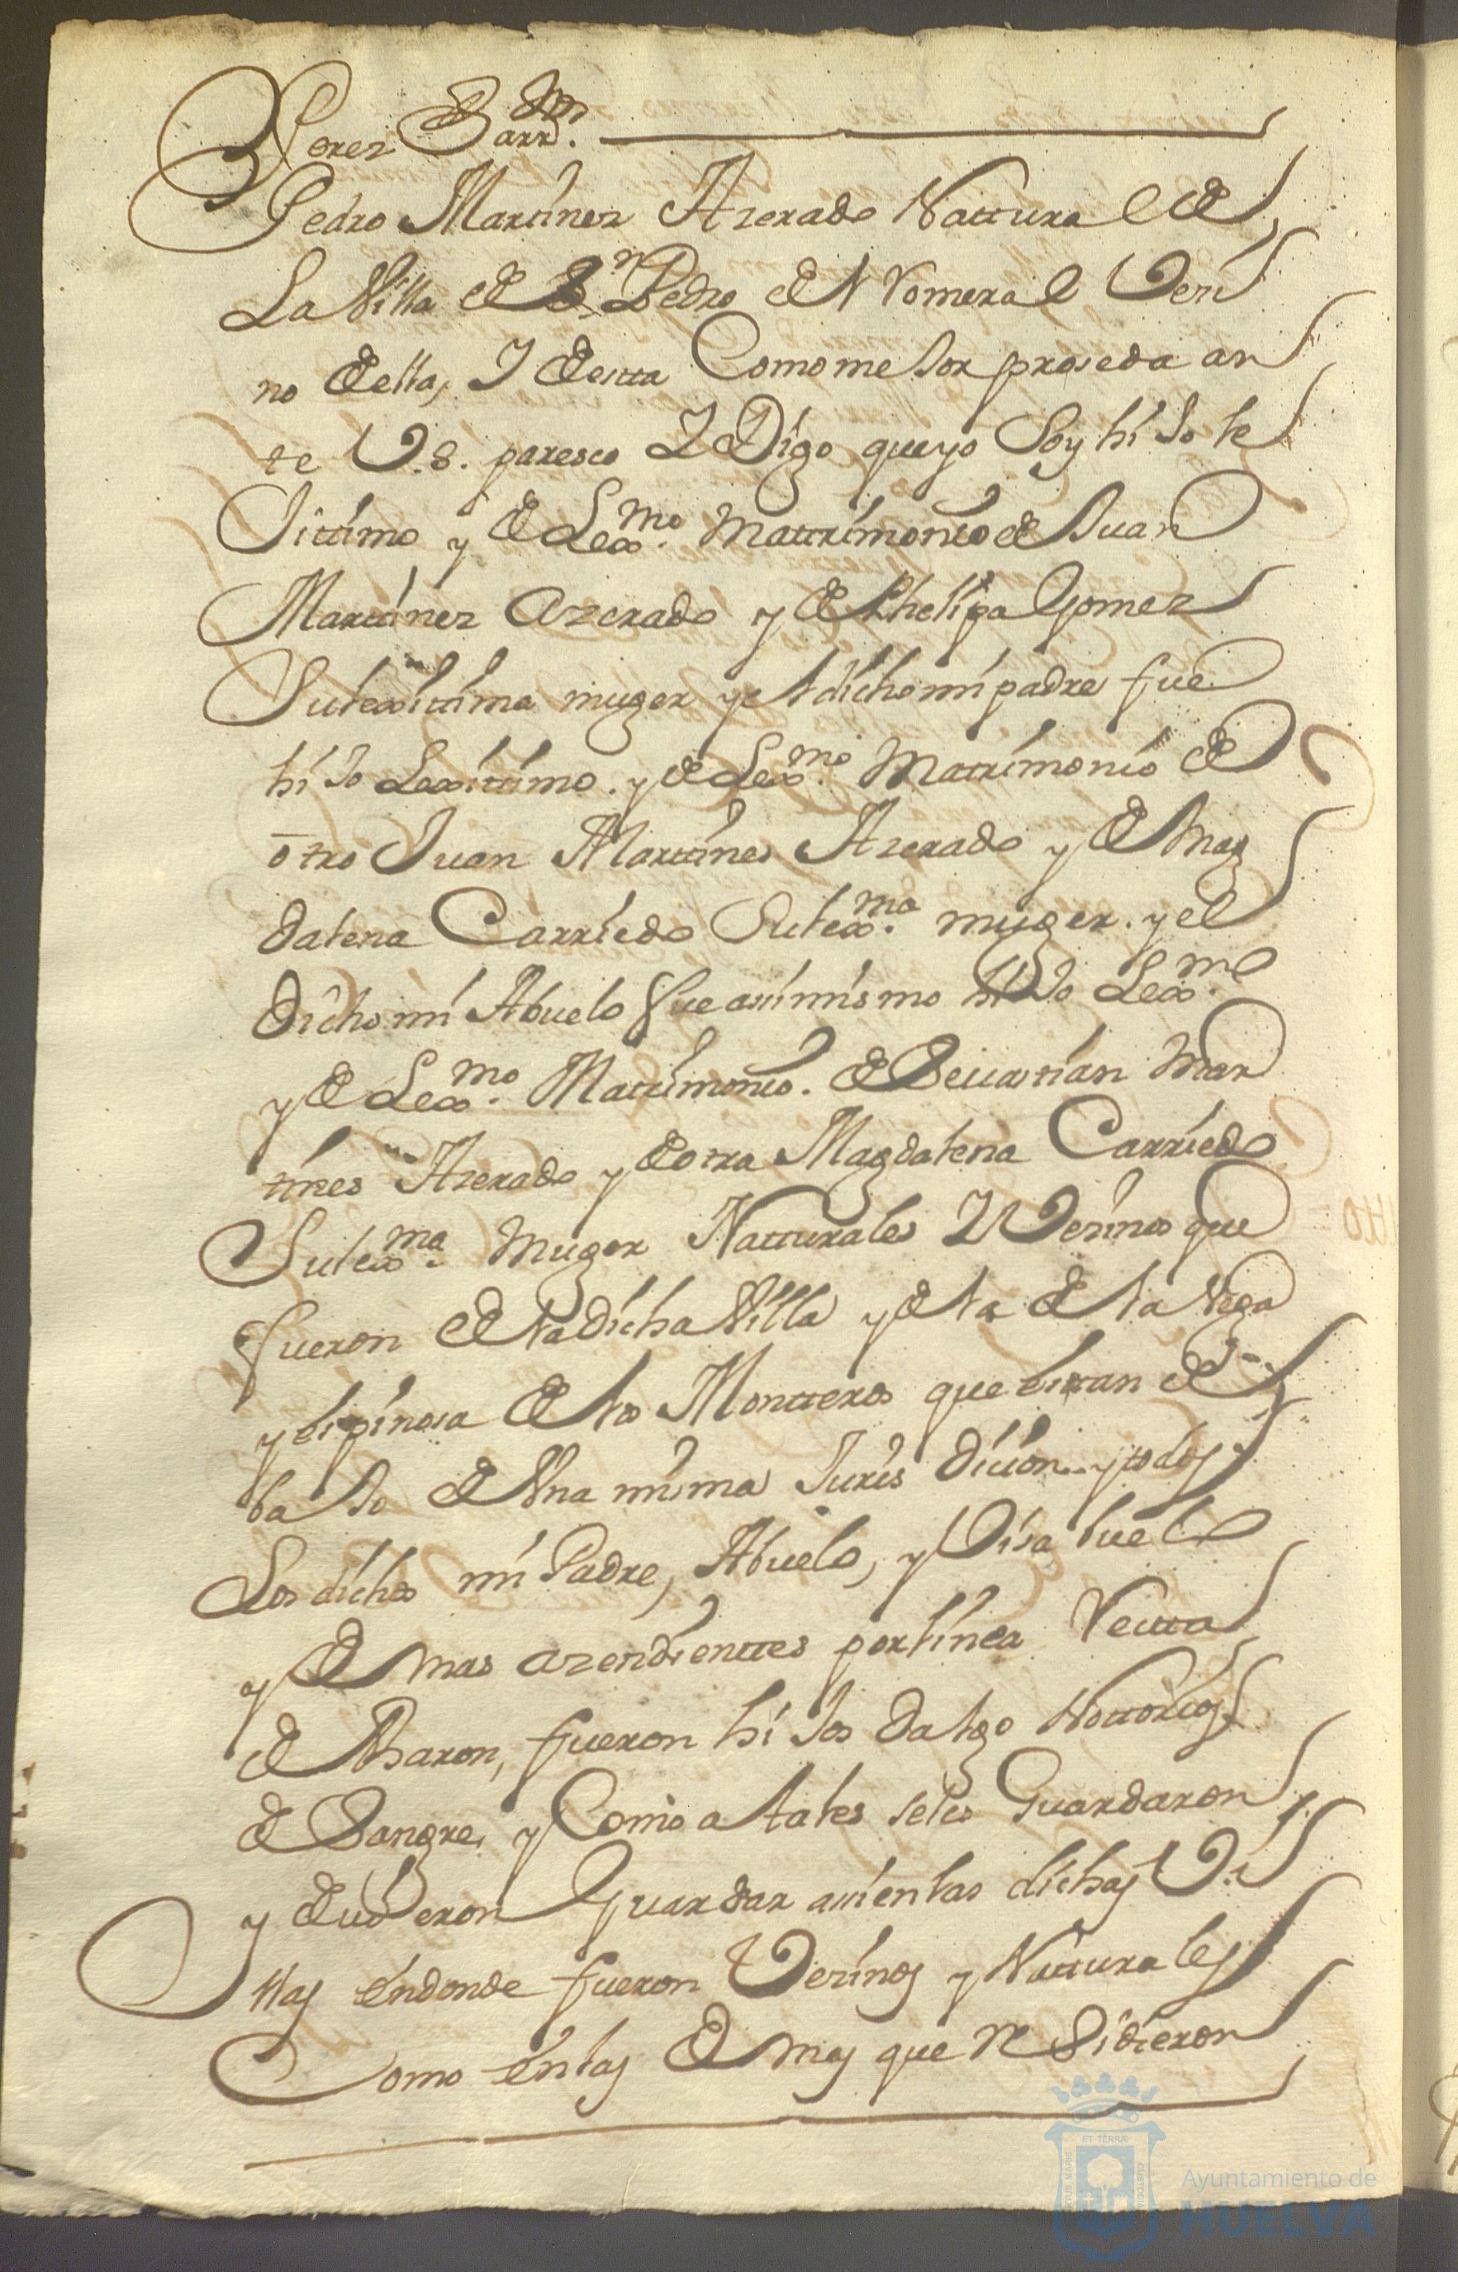 Perez Barr.
Pedro Martinez Azerado Nattural de
La Villa de Sn. Pedro del Romeral Vezi
no della, I desta Como mejor proseda an
te V.S. paresco I Digo que yo Soy hijo le
Jittimo y de Lexmo. Mattrimonio de Juan
Martinez Azerado y de Phelipa Gomez
Sulexittima muger y el dicho mi padre fue
hijo Lexittimo. y de Lexmo. Matrimonio de
otro Juan Martines Azerado y de Mag
dalena Carriedo Sulexma. muger. y el
Dicho mi Abuelo fue assimismo hijo Lexmo.
y de Lexmo. Matrimonio. de Sevastian Mar
tines Azerado y de otra Magdalena Carriedo
Sulexma. Muger Natturales I Vezinos que
fueron de la dicha Villa y de la de la Vega
y Espinosa de los Montteros que estan de
bajo de Una misma Jurisdicion. y todos
Los dichos mi Padre, Abuelo, y Visabuelo
y demas azendienttes por linea Recta
de Baron, fueron hijos dalgo Nottorios
de Sangre, y Como a tales seles Guardaron
y devieron Guardar assi en las dichas Vi
llas en donde fueron Vezinos y Natturales
Como en las demas que Residieron
Ayuntamiento de
HUELVA